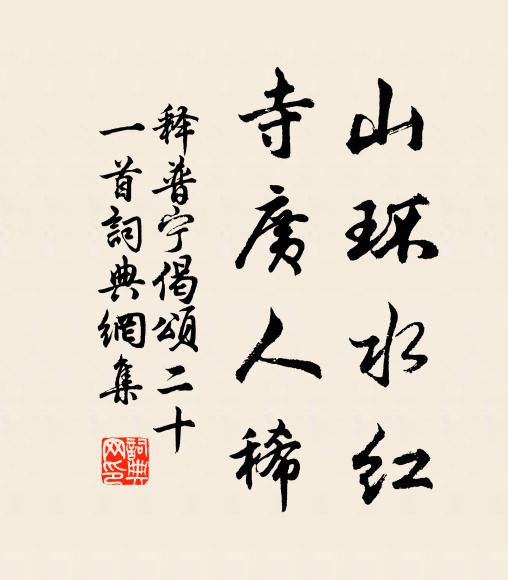 山环水红
寺廣人稀
释普宁偈頌二十
一首詞典網集
詞典
网印